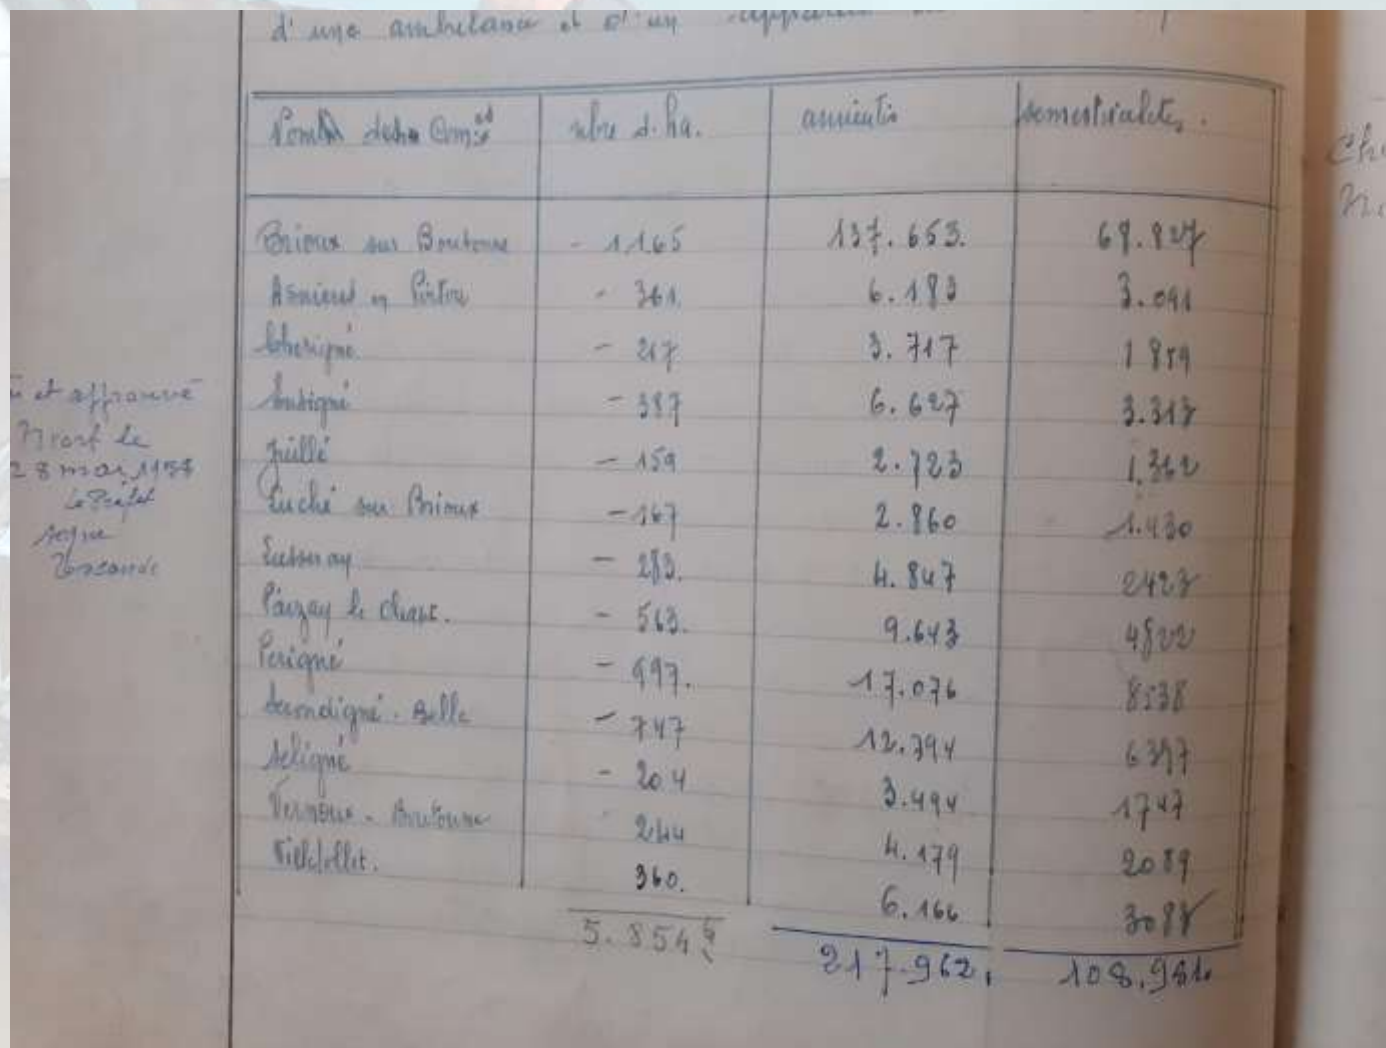 d'une ambulance et d'un
nbre d. ha. annuités semestrialités.
Brioux sur Boutonne - 1165 137.653. 68.827
Asnières en Poitou - 361. 6.183 3.091
Chérigné - 217 3.717 1859
Lusigné - 387 6.627 3.313
Juillé - 159 2.723 1.362
Luché sur Brioux - 167 2.860 1.430
Lusseray - 283. 4.847 2423
Paizay le Chapt. - 563. 9.643 4822
Périgné - 997. 17.076 8538
Secondigné. Belle - 747 12.794 6397
Séligné - 204 3.494 1747
Vernoux - Boutonne 244 4.179 2089
Villefollet. 360. 6.166 3083
5.854 217.962. 108.981.
u et approuvé
Niort le
28 mai 1955
Le Préfet
signé
Ch